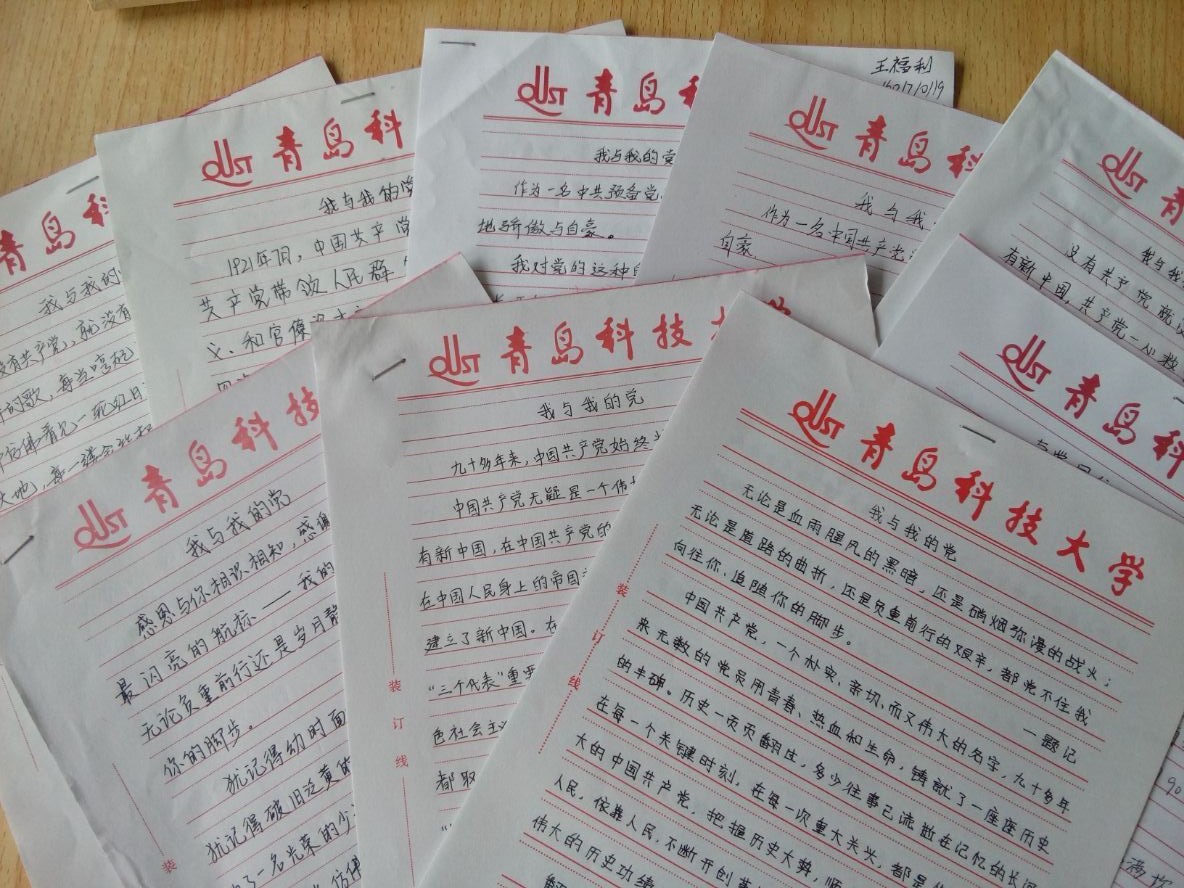 王福利
QUST 青岛科
我与我的党
1921年7月，中国共产党
共产党带领人民群
义、和官僚
QUST 青岛
我与我的党
作为一名中共预备党
地骄傲与自豪。
我对党的这种自
QUST 青岛科
我与我
作为一名中国共产党
自豪
QUST 青
我与我
没有共产党就没
有新中国，共产党一心
QUST 青岛科
青岛科
我与我的
没有共产党，就没有
的歌，每当唱
QUST 青岛科技
我与我的党
感恩与你相识、相知，感
最闪亮的航标——我的
无论负重前行还是岁月
你的脚步。
犹记得幼时面
犹记得破旧泛黄的
了一名光荣的少
装
QUST 青岛科技大
我与我的党
九十多年来，中国共产党始终
中国共产党无疑是一个伟
有新中国，在中国共产党的
在中国人民身上的帝国
建立了新中国。在
“三个代表”重要
色社会主
都取
装
订
线
QUST 青岛科技大学
我与我的党
无论是血雨腥风的黑暗，还是硝烟弥漫的战火；
无论是道路的曲折，还是负重前行的艰辛，都挡不住我
向往你、追随你的脚步。
—题记
中国共产党，一个朴实、亲切、而又伟大的名字，九十多年
来无数的党员用青春、热血和生命，铸就了一座座历史
的丰碑。历史一页页翻过，多少往事已流逝在记忆的长河
在每一个关键时刻，在每一次重大关头，都是
大的中国共产党，把握历史大势，顺
人民，依靠人民，不断开创
伟大的历史功绩
装
订
线
90